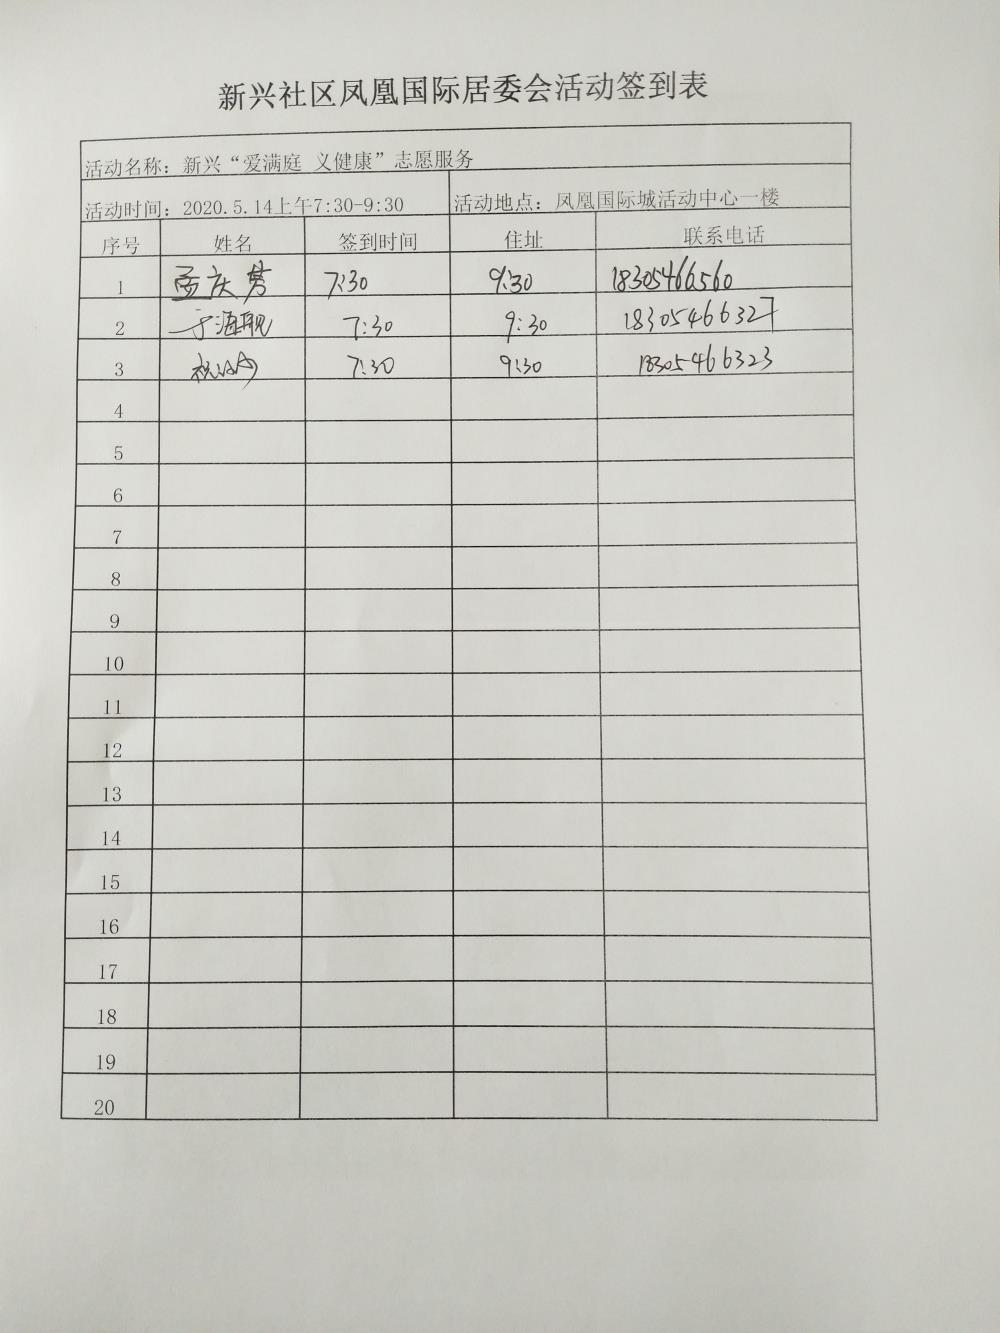 新兴社区凤凰国际居委会活动签到表
活动名称：新兴“爱满庭 义健康”志愿服务
活动时间：2020.5.14上午7:30-9:30 活动地点：凤凰国际城活动中心一楼
序号 姓名 签到时间 住址 联系电话
1 孟庆 7:30 9:30 18305466560
2 于海 7:30 9:30 18305466327
3 祝 7:30 9:30 18305466323
4
5
6
7
8
9
10
11
12
13
14
15
16
17
18
19
20